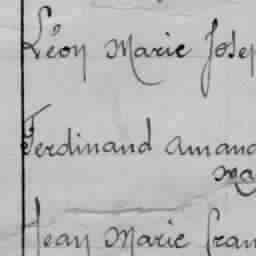 Léon Marie Josep
Ferdinand Amand
Jean Marie Fran